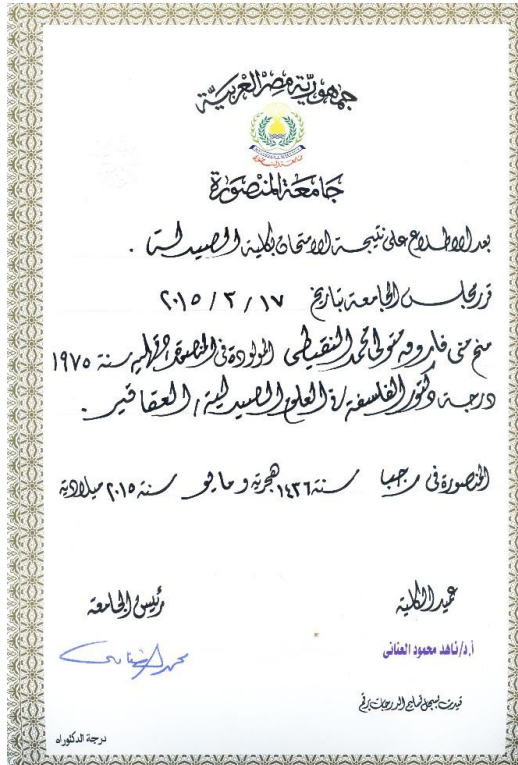 جمهورية مصر العربية
جامعة المنصورة
جامعة المنصورة
بعد الاطلاع على نتيجة الامتحان بكلية الصيدلة .
قرر مجلس الجامعة بتاريخ ١٧ / ٣ / ٢٠١٥
منح منى فاروق متولى محمد النقيطى المولودة فى المنصورة دقهلية سنة ١٩٧٥
درجة دكتور الفلسفة فى العلوم الصيدلية / العقاقير .
المنصورة فى رجب سنة ١٤٣٦ هجرية و مايو سنة ٢٠١٥ ميلادية
عميد الكلية
رئيس الجامعة
أ.د/ناهد محمود العنانى
قيدت بسجل تسليم الدرجات برقم
درجة الدكتوراه